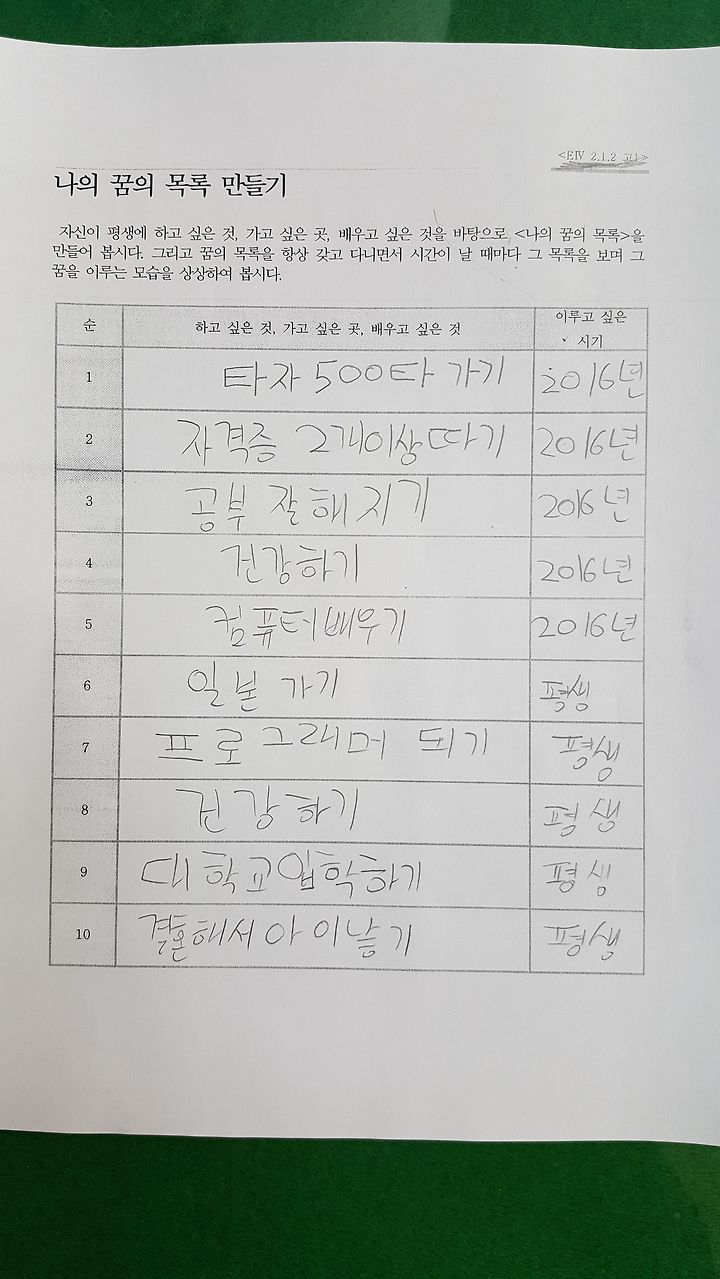 <EIV 2.1.2 고1>
나의 꿈의 목록 만들기
자신이 평생에 하고 싶은 것, 가고 싶은 곳, 배우고 싶은 것을 바탕으로 <나의 꿈의 목록>을
만들어 봅시다. 그리고 꿈의 목록을 항상 갖고 다니면서 시간이 날 때마다 그 목록을 보며 그
꿈을 이루는 모습을 상상하여 봅시다.
순 하고 싶은 것, 가고 싶은 곳, 배우고 싶은 것 이루고 싶은 시기
1 타자 500타 가기 2016년
2 자격증 2개이상따기 2016년
3 공부 잘해지기 2016년
4 건강하기 2016년
5 컴퓨터배우기 2016년
6 일본 가기 평생
7 프로그래머 되기 평생
8 건강하기 평생
9 대학교입학하기 평생
10 결혼해서아이낳기 평생